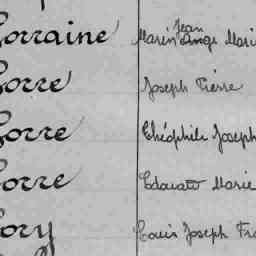 Lorraine Marin Jean Ange Mari
Lorre Joseph Pierre
Lorre Théophile Joseph
Lorre Edouard Marie
Lory Louis Joseph Fra